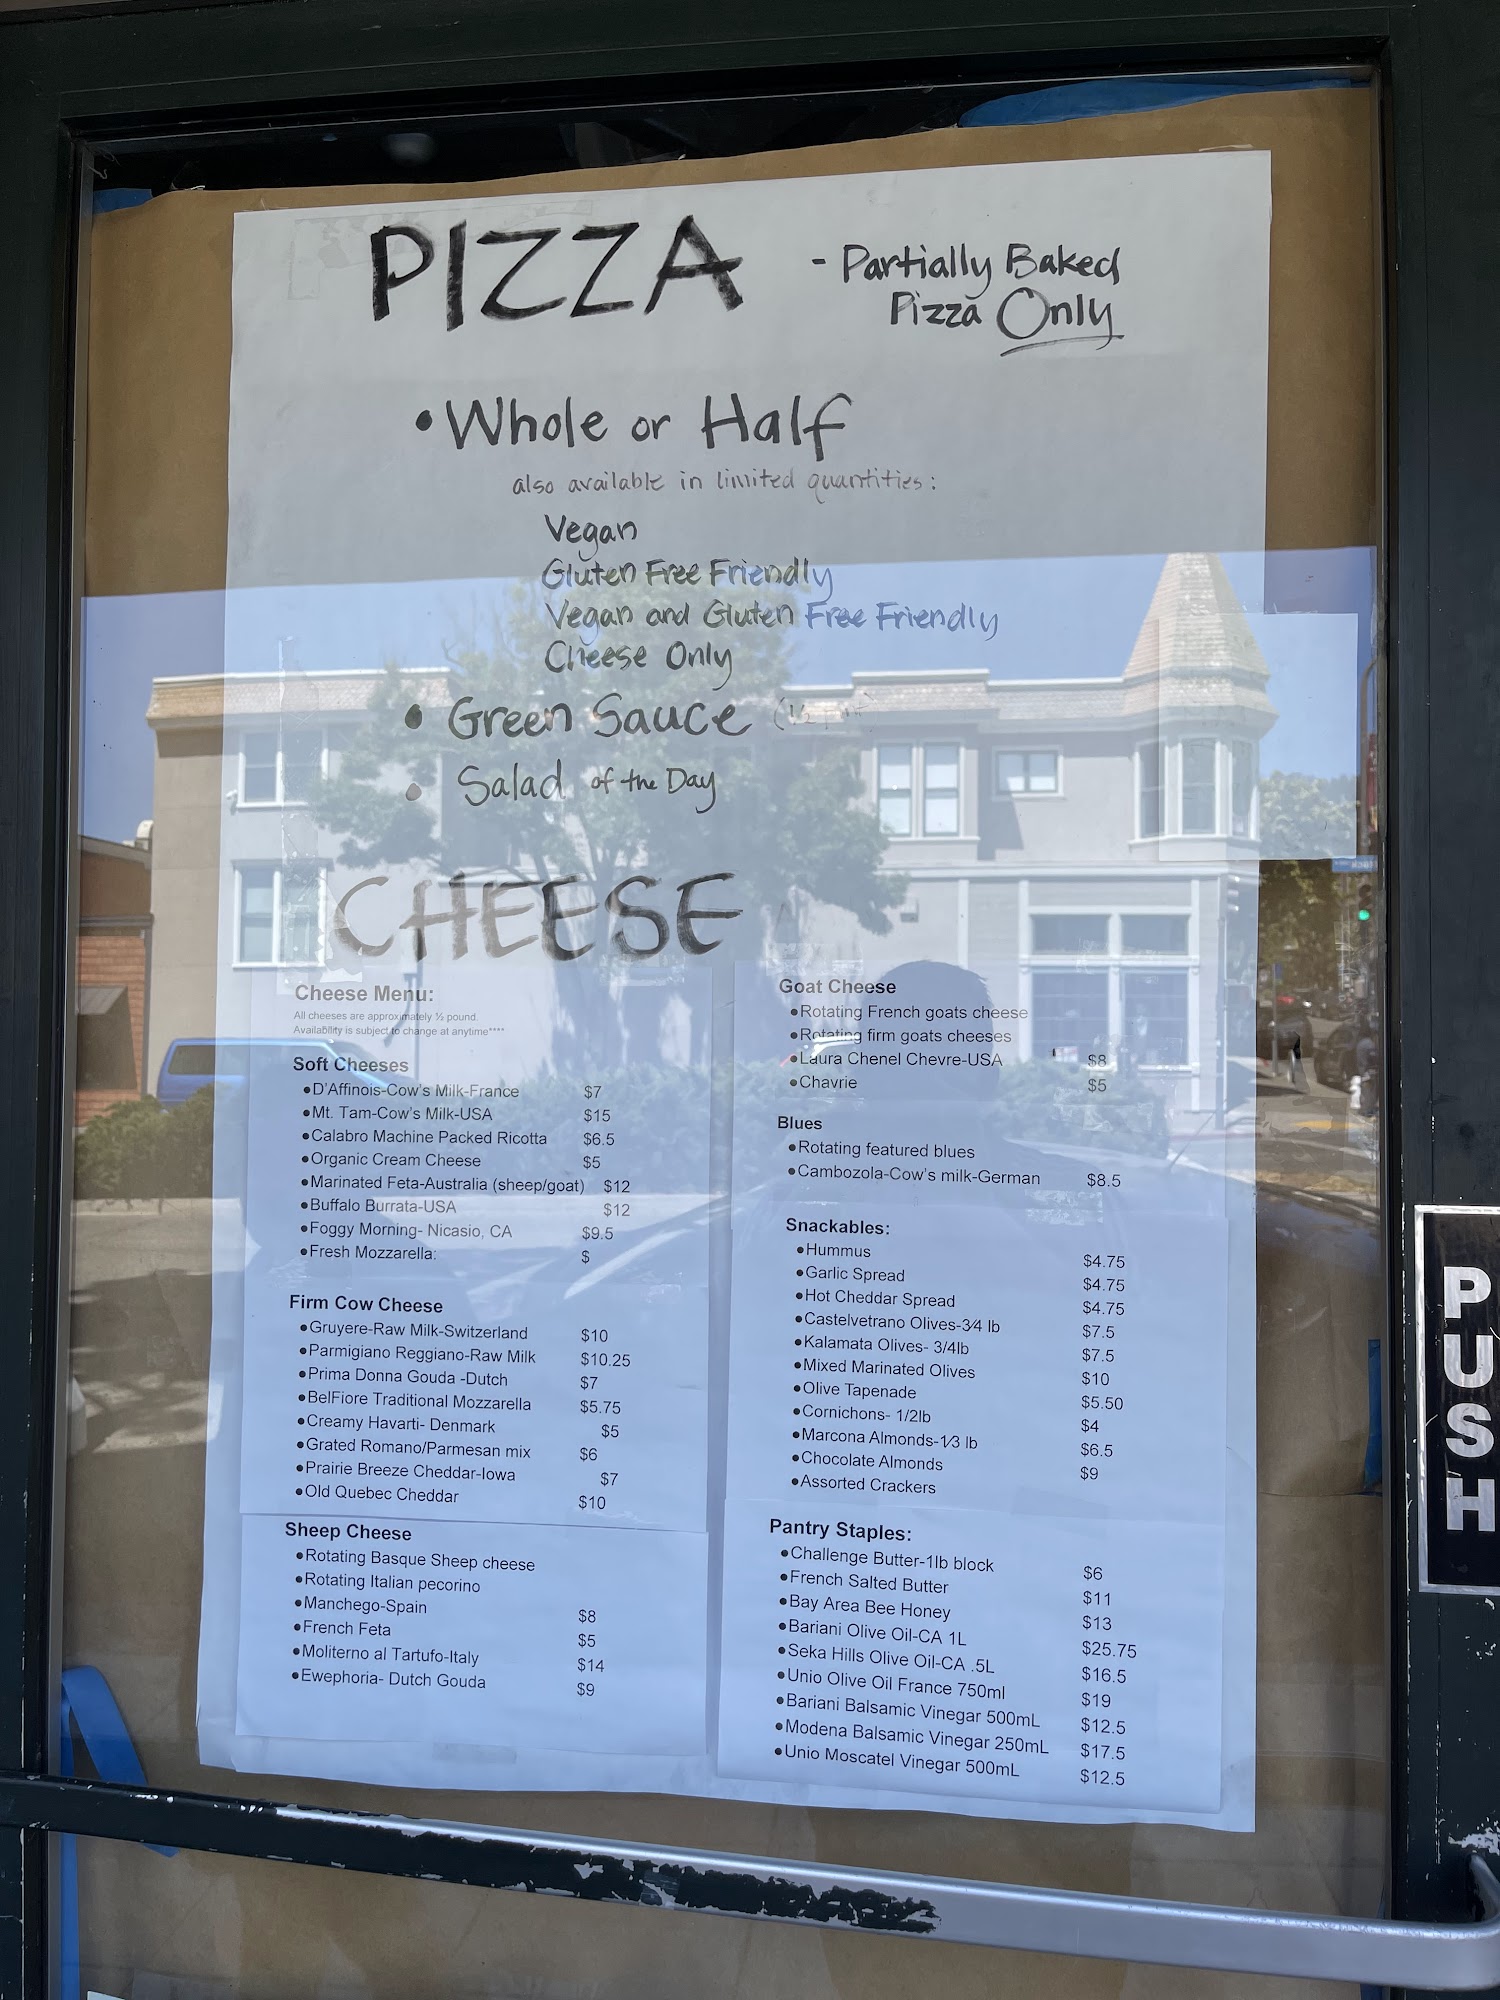 PIZZA
- Partially Baked
Pizza Only
• Whole or Half
also available in limited quantities:
Vegan
Gluten Free Friendly
Vegan and Gluten Free Friendly
Cheese Only
• Green Sauce
• Salad of the Day
CHEESE
Cheese Menu:
All cheeses are approximately ½ pound.
Availability is subject to change at anytime****
Soft Cheeses
•D'Affinois-Cow's Milk-France $7
•Mt. Tam-Cow's Milk-USA $15
•Calabro Machine Packed Ricotta $6.5
•Organic Cream Cheese $5
•Marinated Feta-Australia (sheep/goat) $12
•Buffalo Burrata-USA $12
•Foggy Morning- Nicasio, CA $9.5
•Fresh Mozzarella: $
Firm Cow Cheese
•Gruyere-Raw Milk-Switzerland $10
•Parmigiano Reggiano-Raw Milk $10.25
•Prima Donna Gouda -Dutch $7
•BelFiore Traditional Mozzarella $5.75
•Creamy Havarti- Denmark $5
•Grated Romano/Parmesan mix $6
•Prairie Breeze Cheddar-Iowa $7
•Old Quebec Cheddar $10
Sheep Cheese
•Rotating Basque Sheep cheese
•Rotating Italian pecorino
•Manchego-Spain $8
•French Feta $5
•Moliterno al Tartufo-Italy $14
•Ewephoria- Dutch Gouda $9
Goat Cheese
•Rotating French goats cheese
•Rotating firm goats cheeses
•Laura Chenel Chevre-USA $8
•Chavrie $5
Blues
•Rotating featured blues
•Cambozola-Cow's milk-German $8.5
Snackables:
•Hummus $4.75
•Garlic Spread $4.75
•Hot Cheddar Spread $4.75
•Castelvetrano Olives-3⁄4 lb $7.5
•Kalamata Olives- 3/4lb $7.5
•Mixed Marinated Olives $10
•Olive Tapenade $5.50
•Cornichons- 1/2lb $4
•Marcona Almonds-1⁄3 lb $6.5
•Chocolate Almonds $9
•Assorted Crackers
Pantry Staples:
•Challenge Butter-1lb block $6
•French Salted Butter $11
•Bay Area Bee Honey $13
•Bariani Olive Oil-CA 1L $25.75
•Seka Hills Olive Oil-CA .5L $16.5
•Unio Olive Oil France 750ml $19
•Bariani Balsamic Vinegar 500mL $12.5
•Modena Balsamic Vinegar 250mL $17.5
•Unio Moscatel Vinegar 500mL $12.5
PUSH